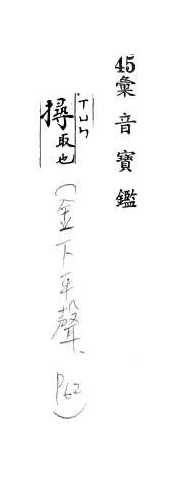 45彙音寶鑑
ㄒㄩㄣˊ
撏取也
(金下平聲、P62)